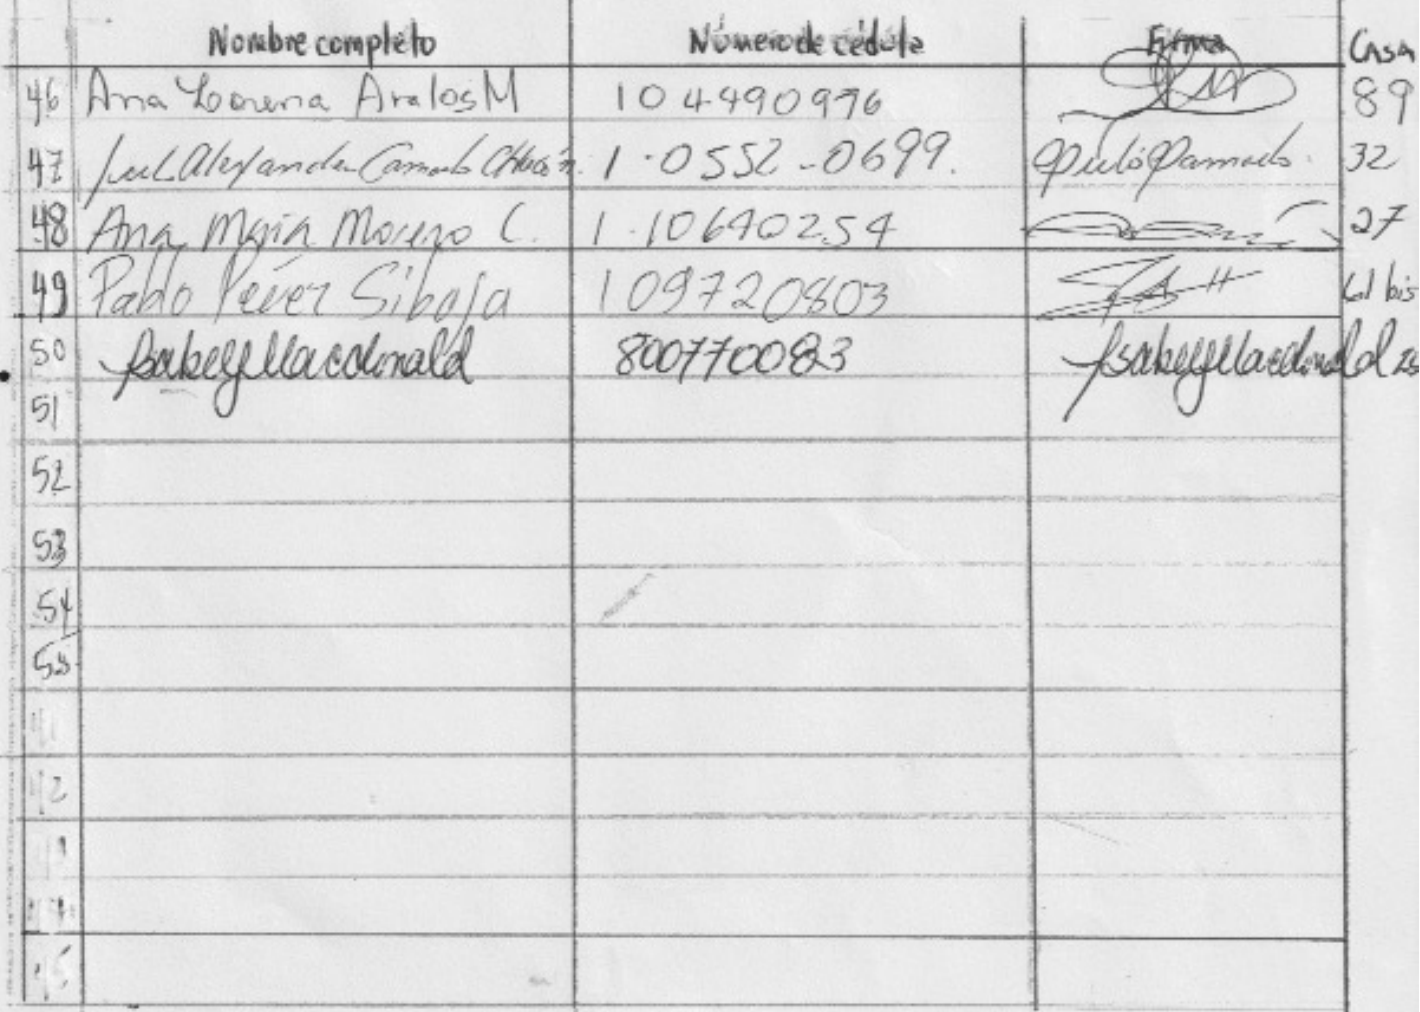 Nombre completo Número de cédula Firma Casa
46 Ana Lorena Avalos M 104490996 89
47 Alexander Camacho 1-0552-0699. 32
48 Ana María Moreno C. 1-10640254 27
49 Pablo Pérez Sibaja 109720803 61 bis
50 Isabey Macdonald 800770083 Isabey Macdonald
51
52
53
54
55
42
45